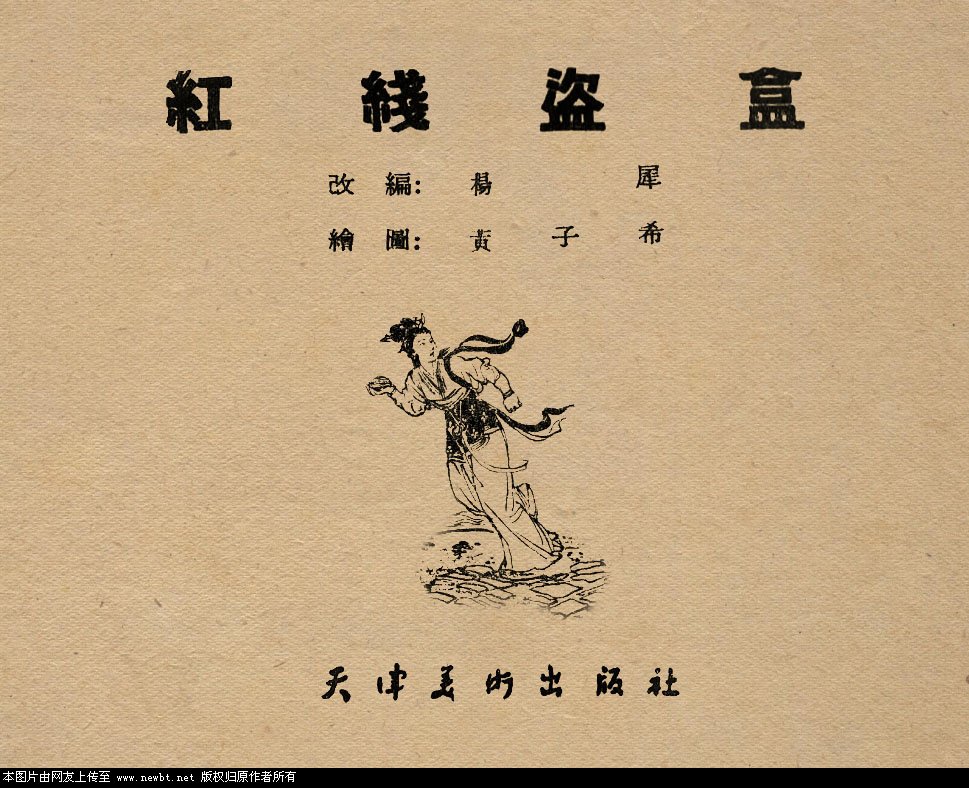 紅綫盜盒
改編：楊犀
繪圖：黃子希
天津美術出版社
本图片由网友上传至 www.newbt.net 版权归原作者所有